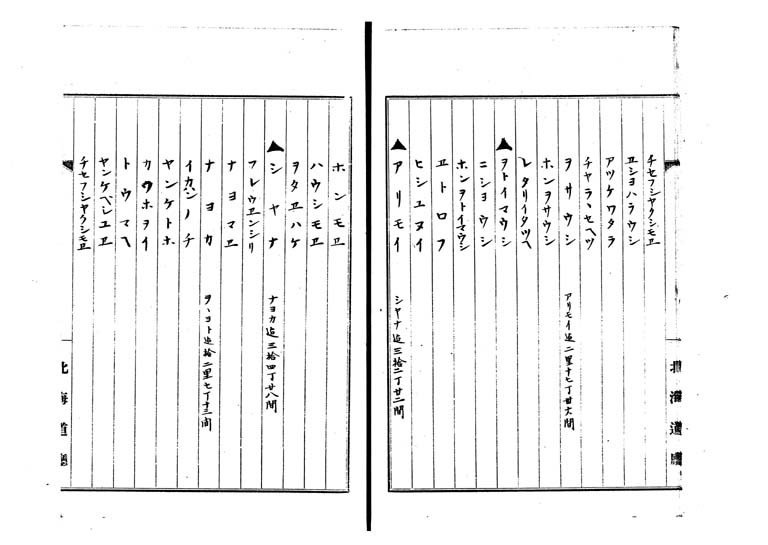 チセフシヤクシモヱ
ヱシヨハラウシ
アツケワタラ
チヤラヽセヘツ
ヲサウシ　アリモイ迠二里十七丁廿六間
ホンヲサウシ
レタリイタツヘ
▲ヲトイマウシ
ニシヨウシ
ホンヲトイマウシ
ヱトロフ
ヒシユヌイ
▲アリモイ　シヤナ迠三拾二丁廿二間
北海道廳
ホンモヱ
ハウシモヱ
ヲタヱハケ
▲シヤナ　ナヨカ迠三拾四丁廿八間
フレウヱンシリ
ナヨマヱ
ナヨカ　ヲヽヨト迠拾二里七丁十三間
イカシノチ
ヤンケトホ
カワホヲイ
トウマヘ
ヤンケベシユヱ
チセフシヤクシモヱ
北海道廳